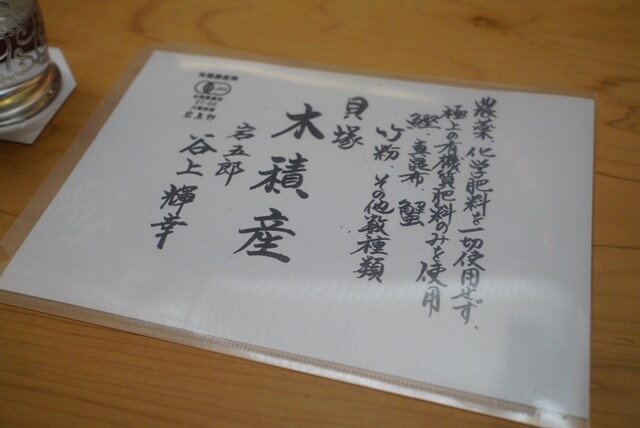 農薬、化学肥料を一切使用せず、
極上の有機質肥料のみを使用
鰹、真昆布、蟹
竹粉、その他数種類
貝塚
木積産
岩五郎
谷上 輝幸
有機農産物